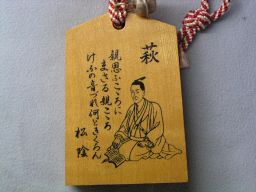 萩
親思ふこころに
まさる親ごころ
けふの音づれ何ときくらん
松陰